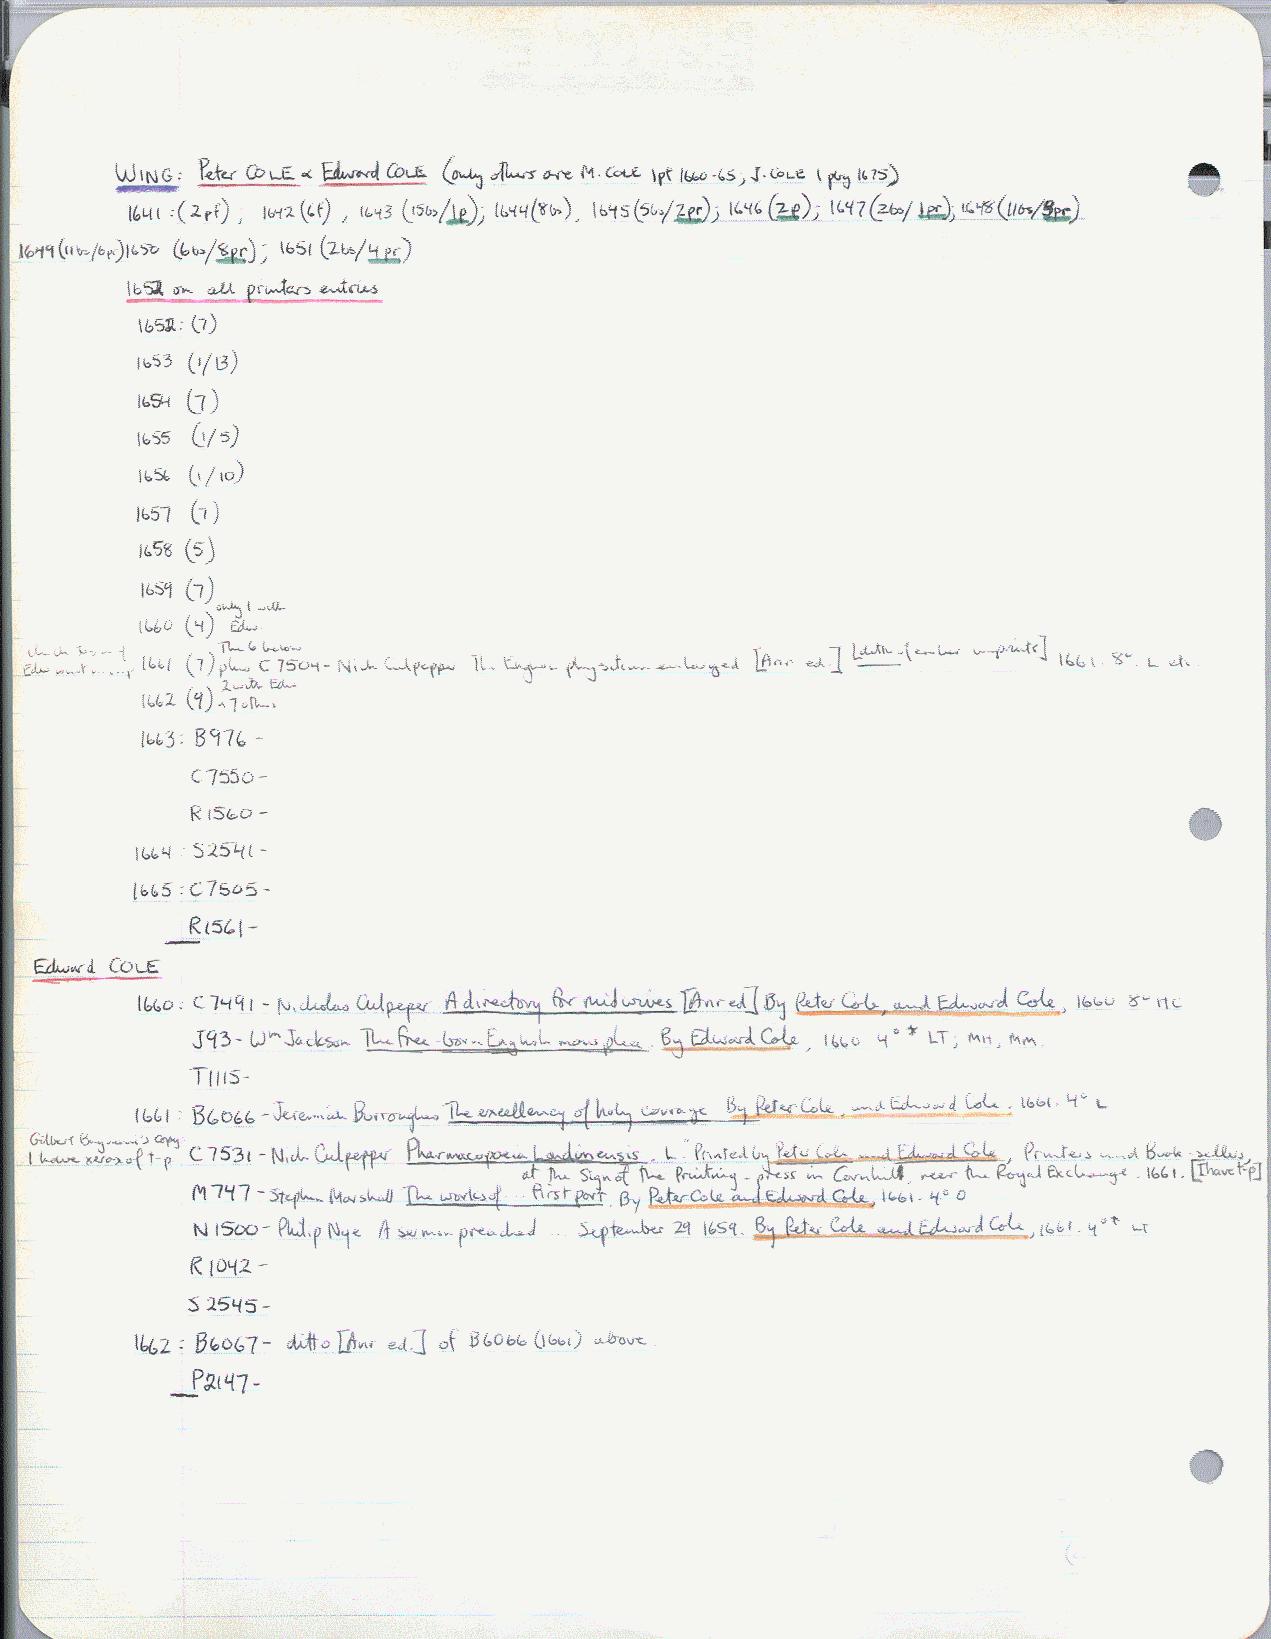 WING: Peter COLE & Edward COLE (only others are M. COLE 1pf 1660-65, J. COLE 1 1675)
1641: (2pf), 1642 (6f), 1643 (15bs/1p); 1644 (8bs), 1645 (5bs/2pr); 1646 (2p); 1647 (2bs/1pr); 1648 (11bs/3pr)
1649 (11bs/6pr) 1650 (6bs/8pr); 1651 (2bs/4pr)
1652 on all printers entries
1652: (7)
1653 (1/13)
1654 (7)
1655 (1/5)
1656 (1/10)
1657 (7)
1658 (5)
1659 (7)
only 1 with
1660 (4) Edw.
The 6 below
1661 (7) plus C7504 - Nich Culpepper The English physitian enlarged [Anr ed.] 1661. 8°. L etc.
2 with Edw
1662 (9) & 7 others
1663: B976 -
C7550 -
R1560 -
1664: S2541 -
1665: C7505 -
R1561 -
Edward COLE
1660: C7491 - Nicholas Culpeper A directory for midwives [Anr ed] By Peter Cole, and Edward Cole, 1660 8° MC
J93 - Wm Jackson The free-born English mans plea. By Edward Cole, 1660 4° * LT; MH, MM.
T1115-
1661: B6066 - Jeremiah Burroughes The excellency of holy courage By Peter Cole, and Edward Cole, 1661. 4° L
Gilbert Bergmann's copy
I have xerox of t-p
C7531 - Nich Culpepper Pharmacopoeia Londinensis. L "Printed by Peter Cole and Edward Cole, Printers and Book-sellers,
at the Sign of the Printing-press in Cornhill, neer the Royal Exchange. 1661. [I have t-p]
M747 - Stephen Marshall The works of ... first part. By Peter Cole and Edward Cole, 1661. 4° O
N1500 - Philip Nye A sermon preached ... September 29 1659. By Peter Cole and Edward Cole, 1661. 4° * LT
R1042 -
S2545 -
1662: B6067 - ditto [Anr ed.] of B6066 (1661) above.
P2147 -